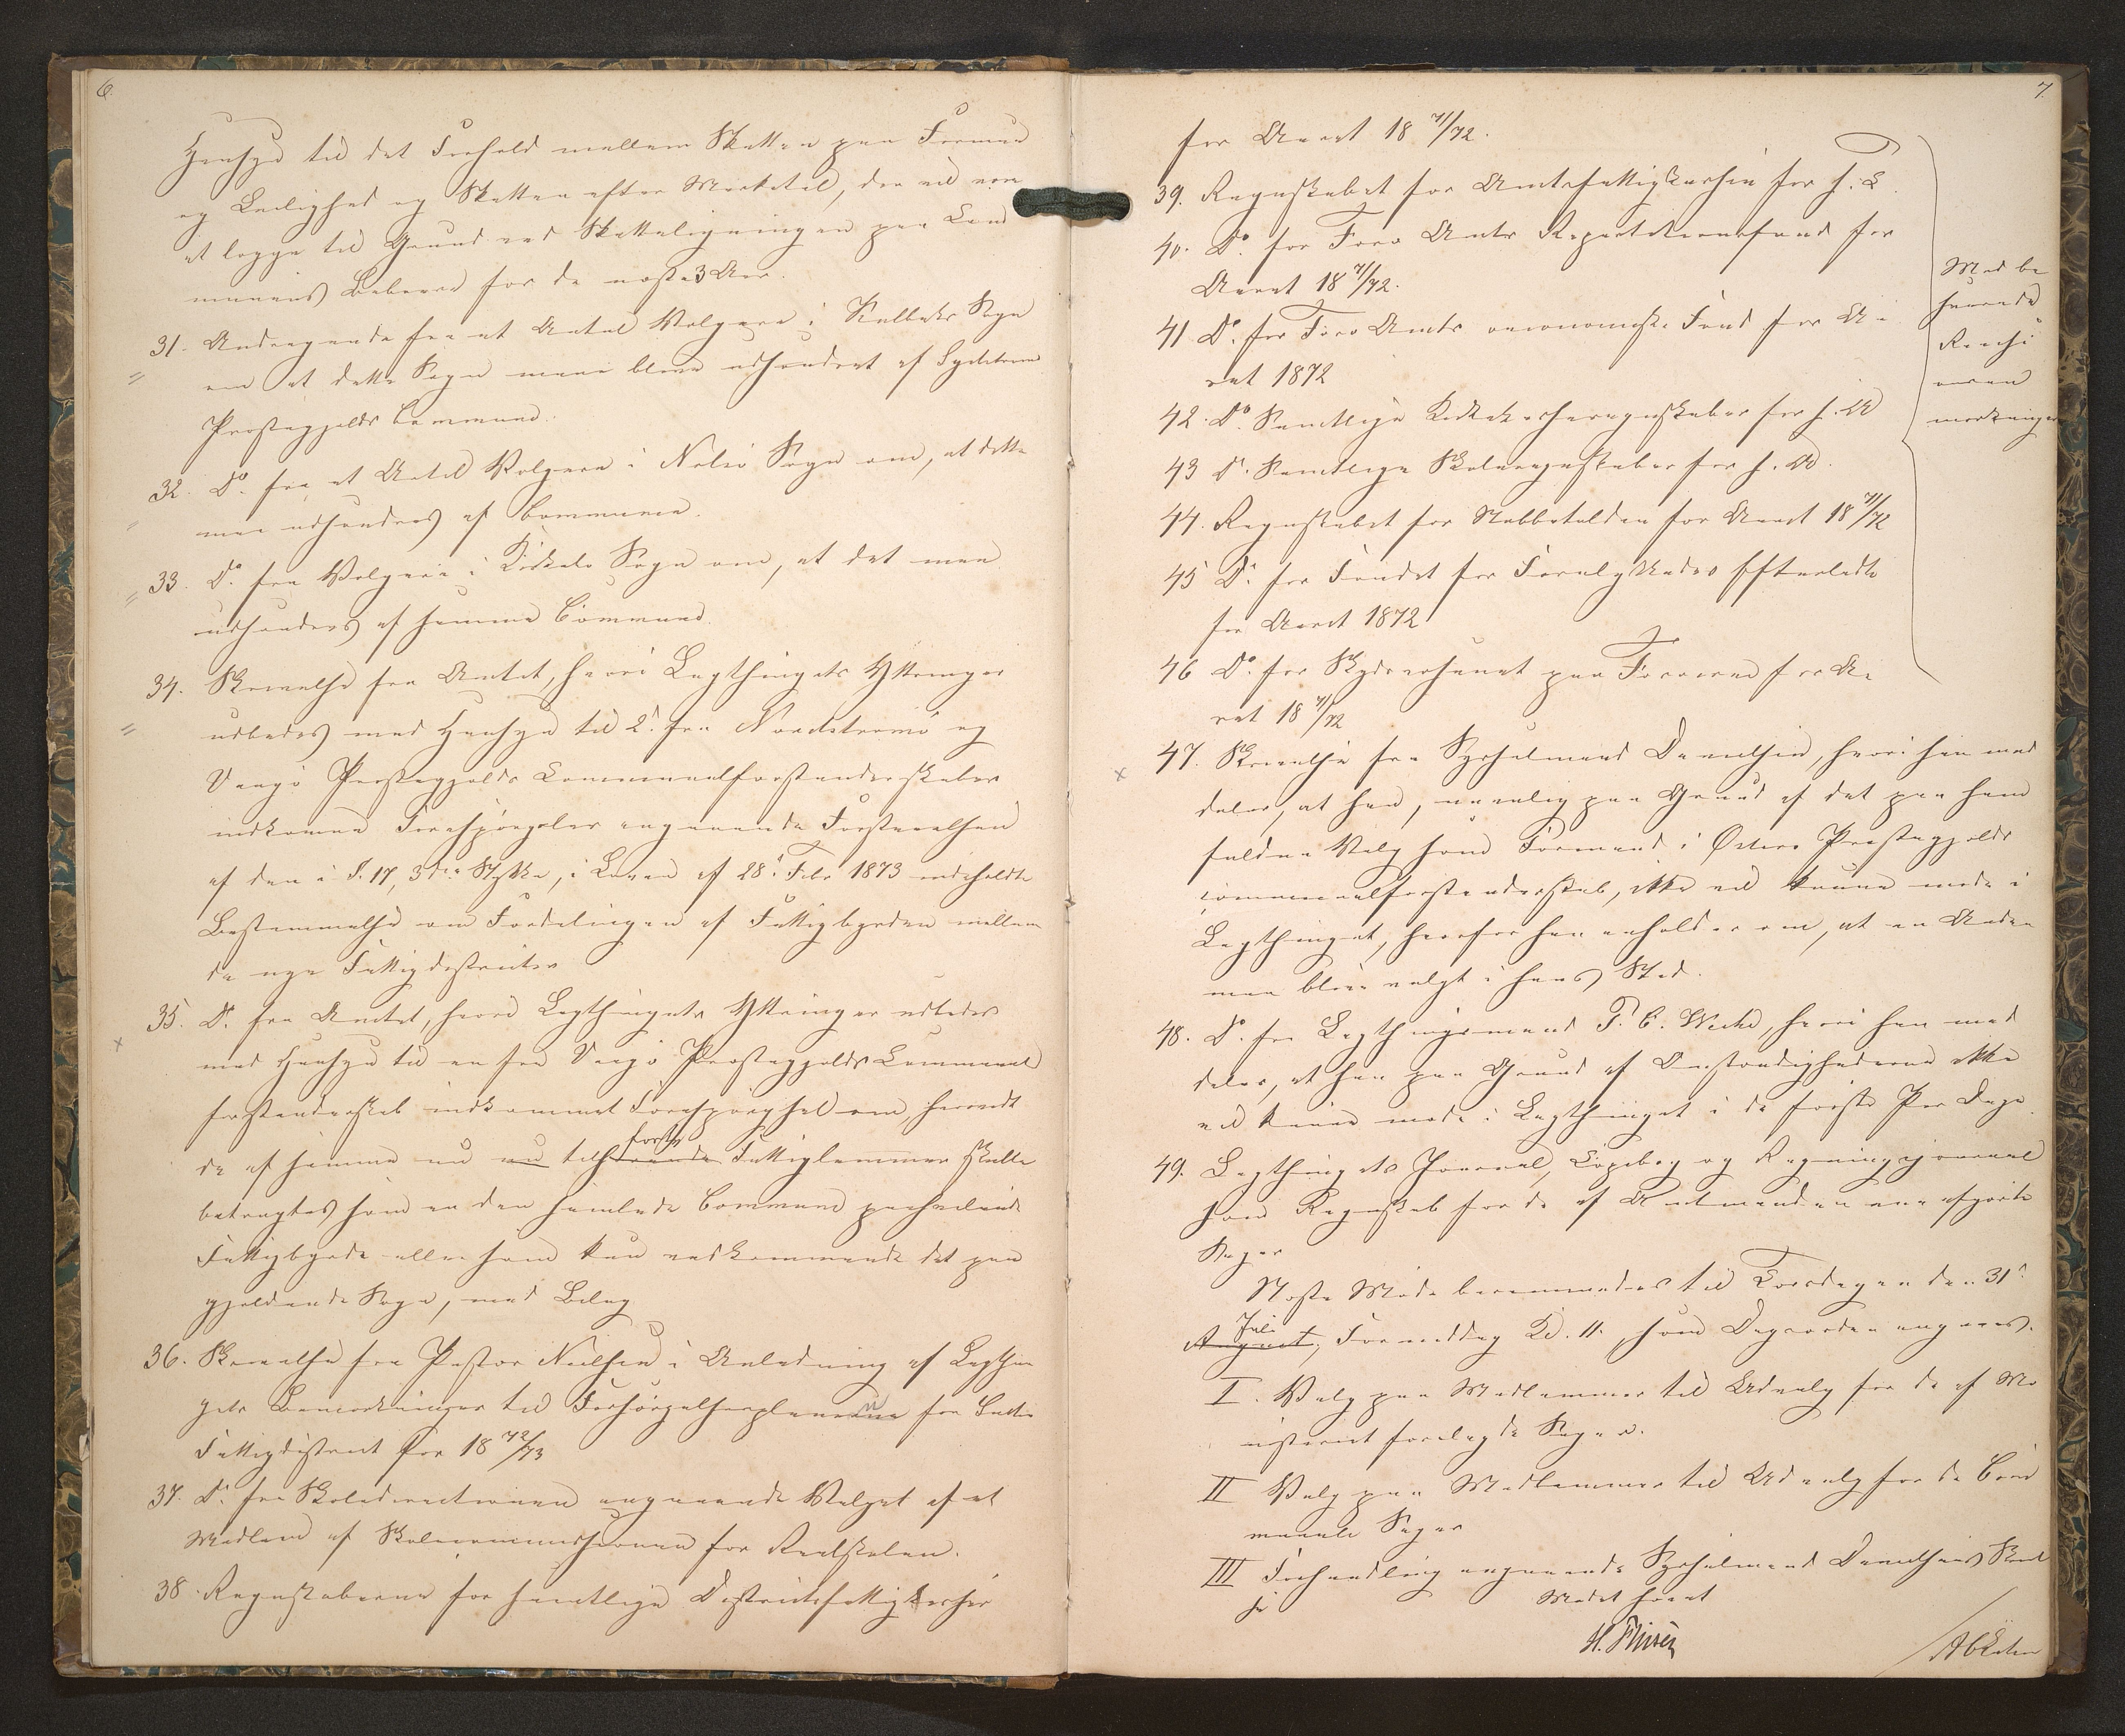 6.
Hensyn til det Forhold mellem Skatten paa Formue
og Leilighed og Skatten efter Markatal, der vil være
at lægge til Grund ved Skatteligningen paa Com
munens Beboere for de næste 3 Aar.
31. Andragende fra et Antal Vælgere i Kalbaks Sogn
om at dette Sogn maa blive udsondret af Sydstrømø
Præstegjelds Commune.
32. Do. fra et Antal Vælgere i Nolsø Sogn om, at dette
maa udsondres af Communen.
33. Do. fra Vælgere i Kirkebø Sogn om, at det maa
udsondres af samme Commune.
34. Skrivelse fra Amtet, hvori Lagthingets Yttringer
udbedes med Hensyn til 2de fra Nordstrømø og
Vaagø Præstegjelds Communalforstanderskaber
indkomne Forespørgsler angaaende Forstaaelsen
af den i §. 17, 3die Stykke, i Loven af 28d Febr 1873 indeholdte
Bestemmelse om Fordelingen af Fattigbyrden mellem
de nye Fattigdistricter
35. Do. fra Amtet, hvori Lagthingets Yttringer udbedes
med Hensyn til en fra Vaagø Præstegjelds Communal
forstanderskab indkommet Forespørgsel om, hvorvidt
de af samme nu nu tilhørende Fattiglemmer skulle
forsø
betragtes som en den samlede Commune paahvilende
Fattigbyrde eller som kun vedkommende det paa
gjældende Sogn, med Bilag
36. Skrivelse fra Pastor Nielsen i Anledning af Lagthin
gets Bemærkninger til Forsørgelsesplanerne for
Fattigdistrict for 18 72/73
37. Do. fra Skoledirectionen angaaende Valget af et
Medlem af Skolecommissionen for Realskolen.
38. Regnskaberne for samtlige Districtsfattigkasser
7.
for Aaret 18 71/72.
39. Regnskabet for Amtsfattigkassen for s. A.
40. Do. for Færø Amts Repartitionsfond for
Aaret 18 71/72.
41 Do. for Færø Amts oeconomiske Fond for Aa
ret 1872
42. Do. Samtlige Kirkekasseregnskaber for s. A
43 Do. Samtlige Skoleregnskaber for s. A.
44. Regnskabet for Næbbetolden for Aaret 18 71/72
45 Do. for Fondet for Forulykkedes Efterladte
for Aaret 1872
46 Do. for Skydsvæsenet paa Færøerne for Aa
ret 18 71/72
Med be
hørende
Revisi
onsan
mærkninger
47. Skrivelse fra Sysselmand Danielsen, hvori han med
deler, at han, navnlig paa Grund af det paa ham
faldne Valg som Formand i Østerø Præstegjelds
Communalforstanderskab, ikke vil kunne møde i
Lagthinget, hvorfor han anholder om, at en Anden
maa blive valgt i hans Sted.
48. Do. fra Lagthingsmand P. C. Weihe, hvori han med
deler, at han paa Grund af Omstændighederne ikke
vil kunne møde i Lagthinget i de første Par Dage.
49. Lagthingets Journal, Copibog og Regningsjournal
som Regnskab for de af Amtmanden ene afgjorte
Sager
Næste Møde berammedes til Torsdagen den 31d
Juli
August, Formiddag Kl. 11. som Dagsorden angaves.
I. Valg paa Medlemmer til Udvalg for de af Mi
nisteriet forelagte Sager.
II Valg paa Medlemmer til Udvalg for de Com
munale Sager
III Forhandling angaaende Sysselmand Danielsens Skrivel
se
Mødet hævet
H. Finsen